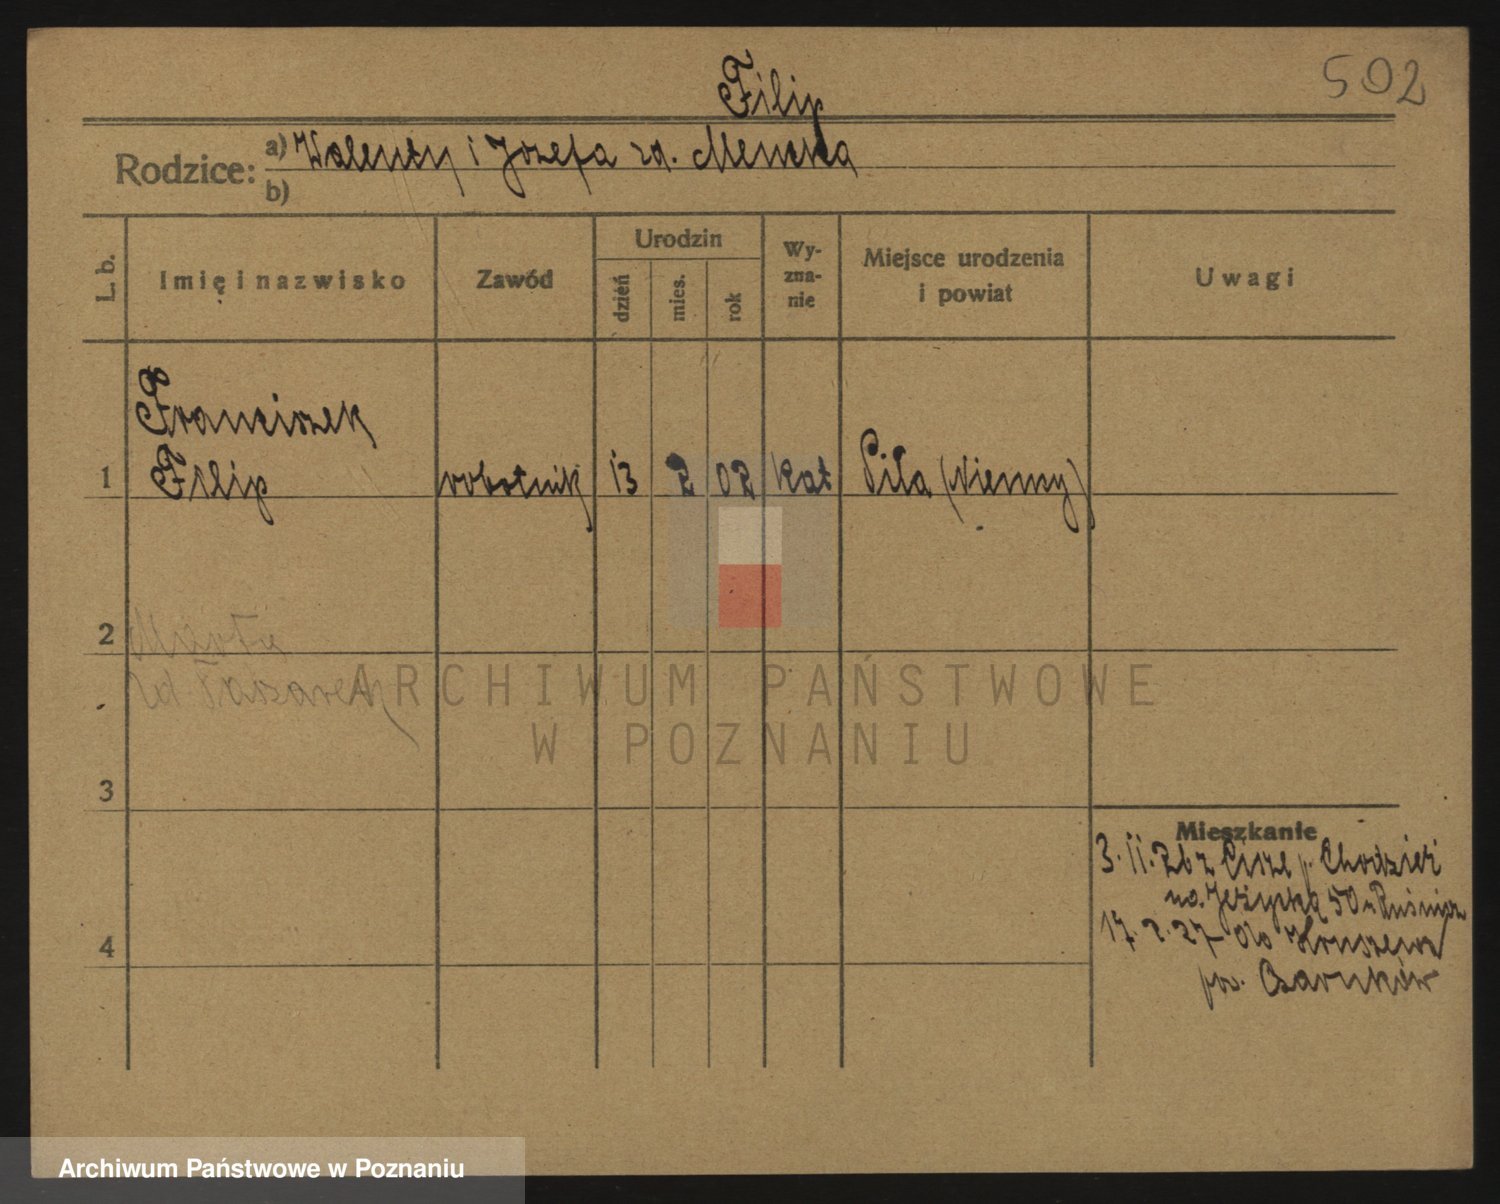 502
Filip
Rodzice: a) Walenty i Józefa zd. Mencka
b)
L. b. Imię i nazwisko Zawód Urodzin dzień mies. rok Wyznanie Miejsce urodzenia i powiat Uwagi
Franciszek
1 Filip robotnik 13 2 02 kat Piła (Niemcy)
2 Marta
zd.
3
4
Mieszkanie
3. 11. 26 z p. Chodzież
na. Jeżycką 50
17. 2. 27 do
pow. Czarnków
ARCHIWUM PAŃSTWOWE
W POZNANIU
Archiwum Państwowe w Poznaniu